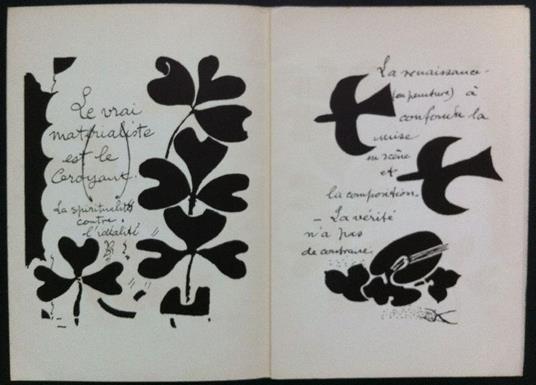 Le vrai
matérialiste
est le
Croyant.
La spiritualité
contre
l'idéalité
La renaissance
(en peinture) à
confondu la
mise
en scène
et
la composition.
– La vérité
n'a pas
de contraire.